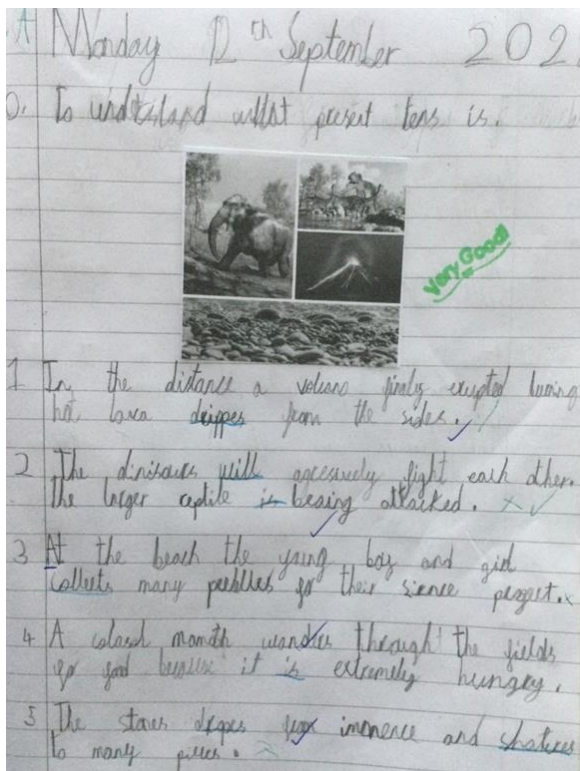 A Monday 12th September 202
O. To understand whst present tens is.
Very Good!
1 In the distance a volcano finaly erupted burning
hot lava drippes from the sides.
2 The dinisaurs will agresively fight each other.
the larger reptile is beaing attacked.
3 At the beach the young boy and girl
collects many pebbles for their sience project.
4 A colosal mamoth wandres through the fields
for food because it is extremely hungry.
5 The stones dropes from and shatures
to many pieces.